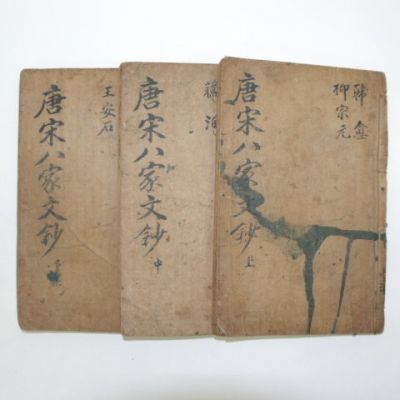 唐宋八家文鈔 上
韓愈
柳宗元
唐宋八家文鈔 中
唐宋八家文鈔 下
王安石